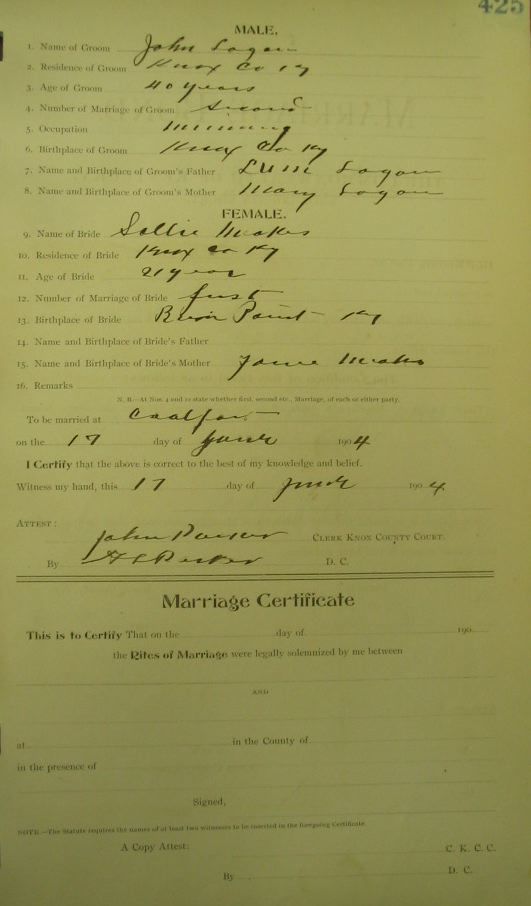 425
MALE.
1. Name of Groom John Logan
2. Residence of Groom Knox Co Ky
3. Age of Groom 40 years
4. Number of Marriage of Groom Second
5. Occupation Minning
6. Birthplace of Groom Knox Co Ky
7. Name and Birthplace of Groom's Father Lum Logan
8. Name and Birthplace of Groom's Mother Mary Logan
FEMALE.
9. Name of Bride Sallie
10. Residence of Bride Knox co Ky
11. Age of Bride 21 year
12. Number of Marriage of Bride first
13. Birthplace of Bride Point Ky
14. Name and Birthplace of Bride's Father
15. Name and Birthplace of Bride's Mother
16. Remarks
N. B.—At Nos. 4 and 12 state whether first, second etc., Marriage, of each or either party.
To be married at
on the 17 day of June 1904
I Certify that the above is correct to the best of my knowledge and belief.
Witness my hand, this 17 day of June 1904
ATTEST:
John Parker CLERK KNOX COUNTY COURT.
By Parker D. C.
Marriage Certificate
This is to Certify That on the day of 190
the Rites of Marriage were legally solemnized by me between
AND
at in the County of
in the presence of
Signed,
NOTE.—The Statute requires the names of at least two witnesses to be inserted in the foregoing Certificate.
A Copy Attest: C. K. C. C.
By D. C.